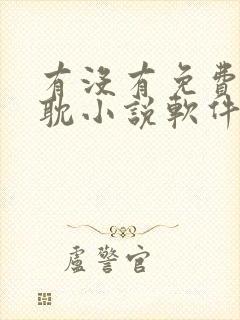 有沒有免費
耽小說軟件
盧警官